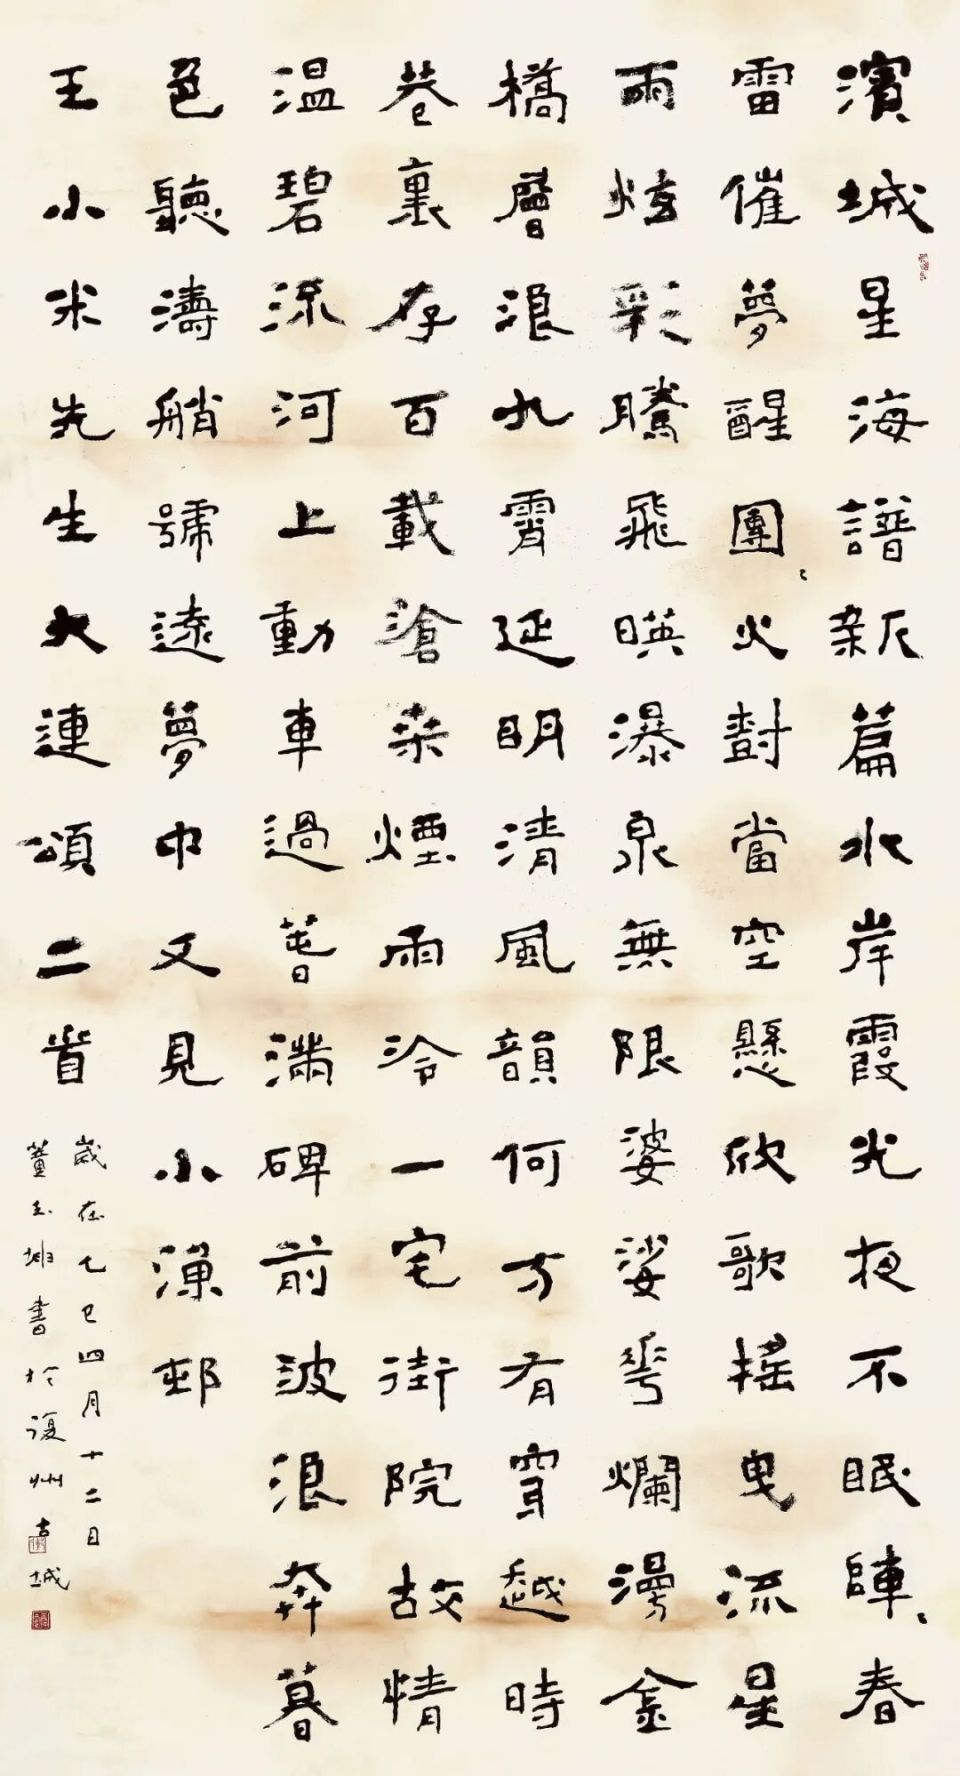 濱城星海譜新篇水岸霞光夜不眠陣々春
雷催夢醒團々火對當空懸欣歌搖曳流星
雨炫彩騰飛暎瀑泉無限婆娑花爛漫金
橋層浪九霄延明清風韻何方有穿越時
巷裏存百載滄桑煙雨冷一宅街院故情
温碧流河上動車過菩滿碑前波浪奔暮
色聽濤艄號遠夢中又見小漁邨
王小米先生大連頌二首
歲在乙巳四月十二日
董玉坤書於復州古城